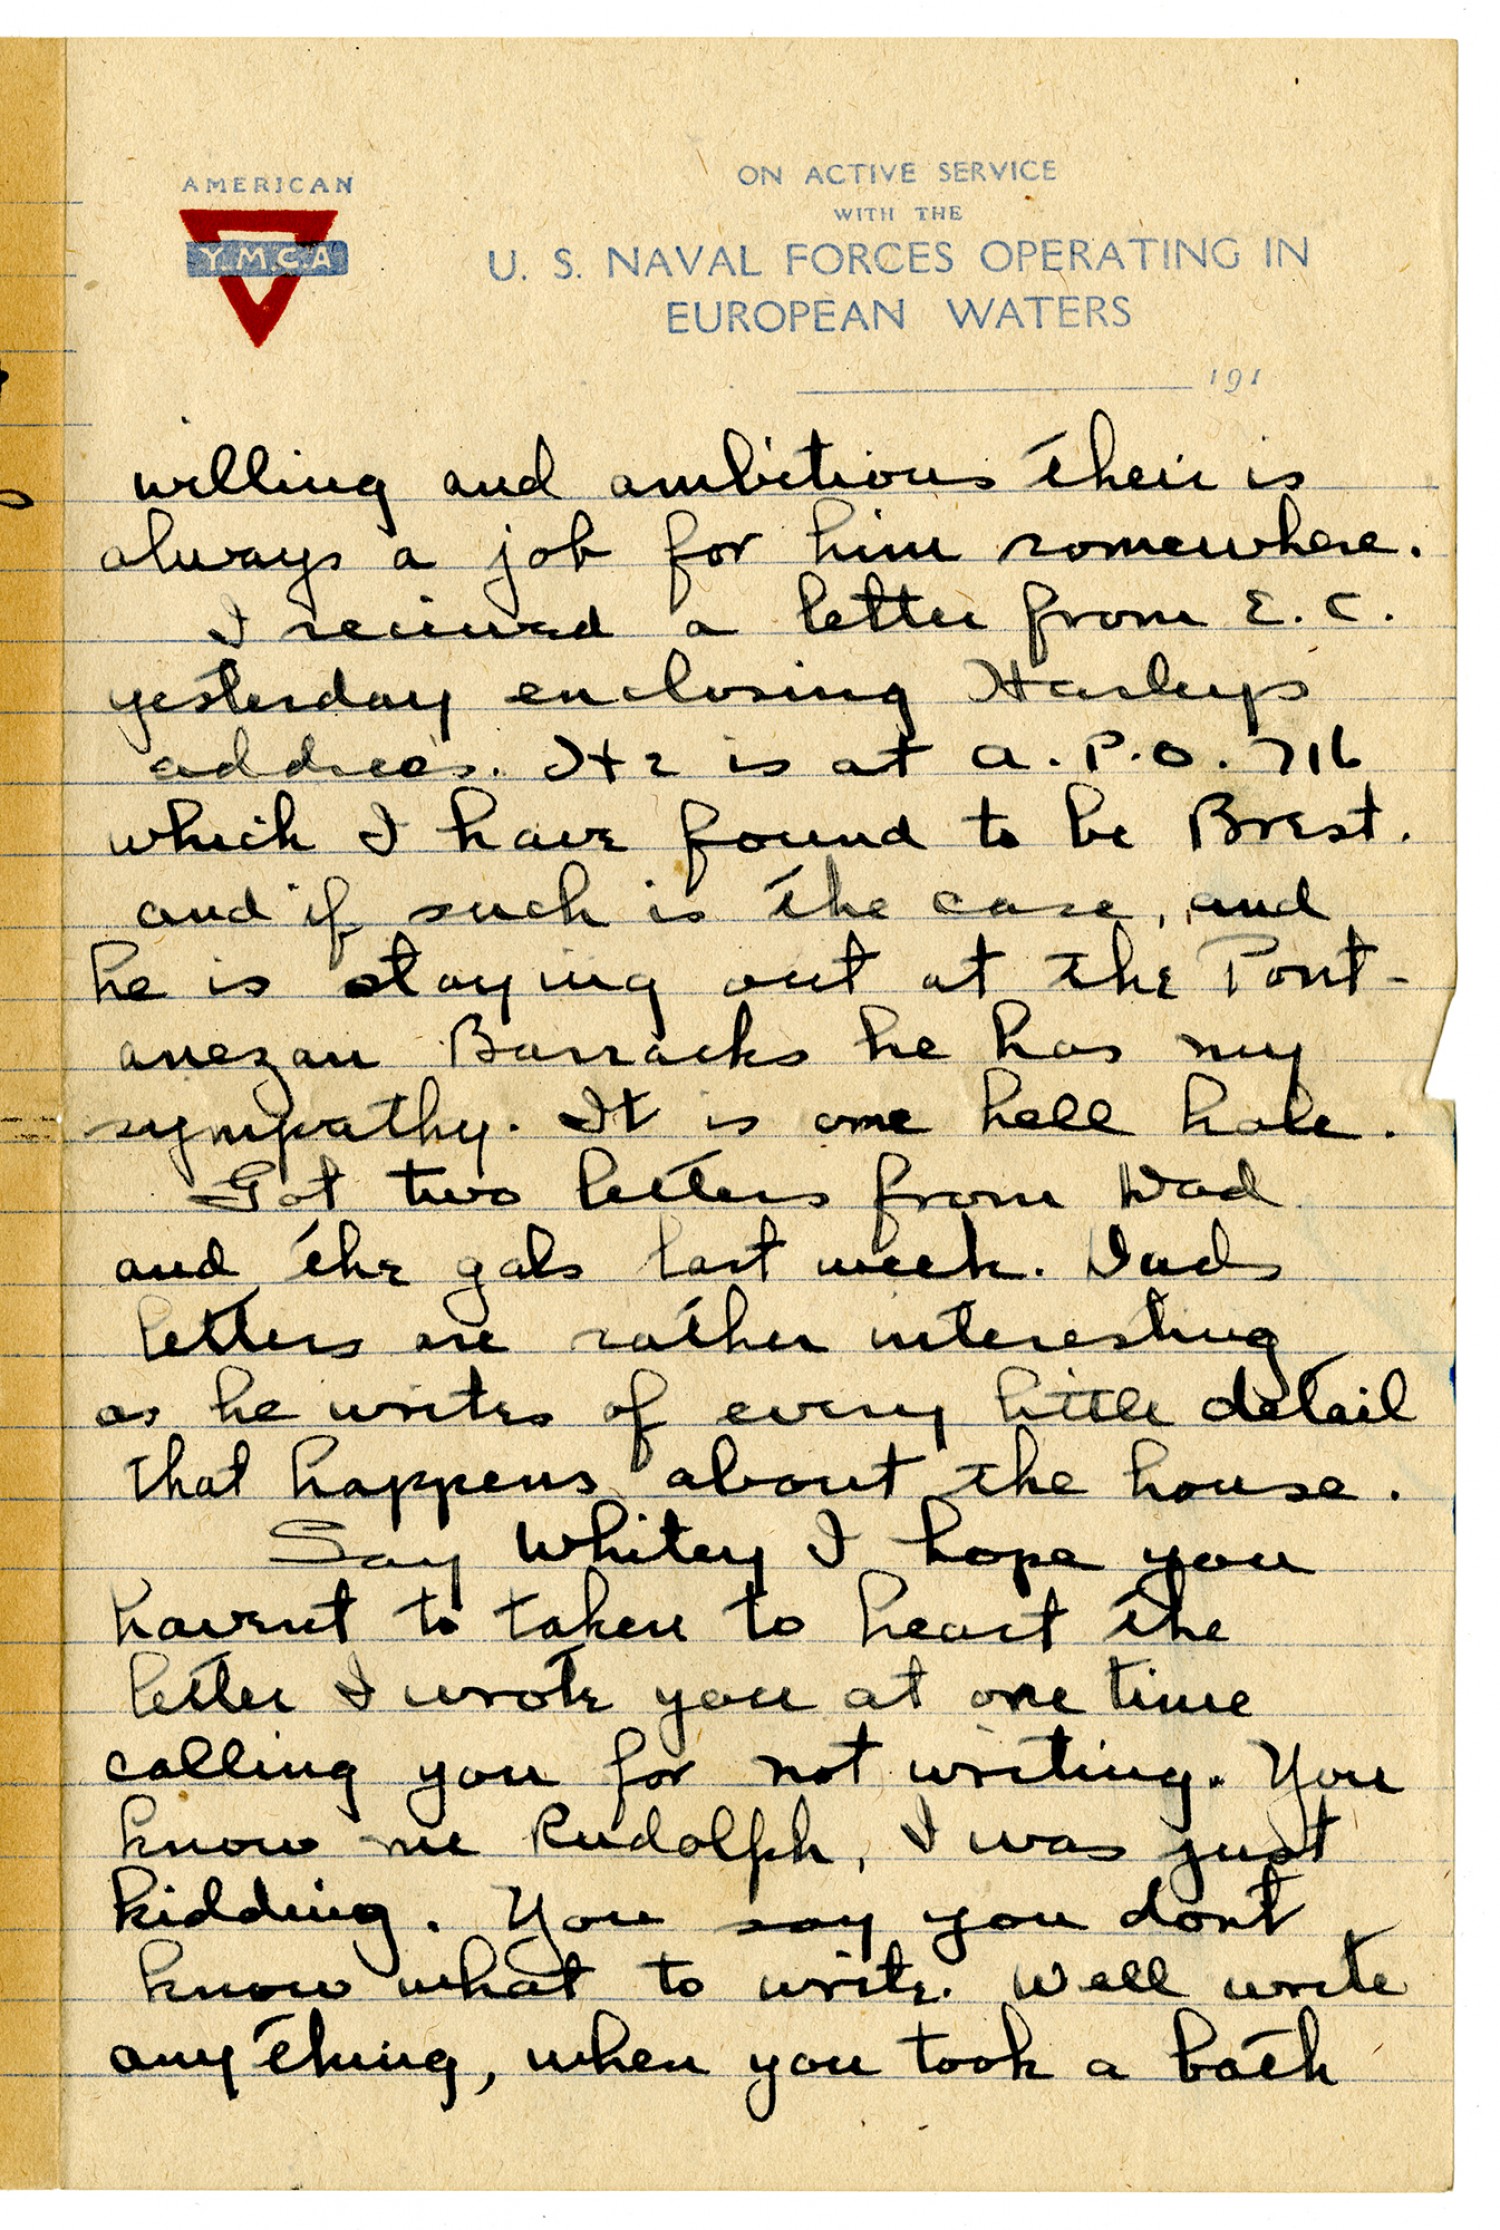 AMERICAN
Y.M.C.A
ON ACTIVE SERVICE
WITH THE
U. S. NAVAL FORCES OPERATING IN
EUROPEAN WATERS
191
willing and ambitious their is
always a job for him somewhere.
I recieved a letter from E. C.
yesterday enclosing Harleys
address. He is at A. P. O. 716
which I have found to be Brest.
and if such is the case, and
he is staying out at the Pont-
anezan Barracks he has my
sympathy. It is one hell hole.
Got two letters from Dad
and the gals last week. Dads
letters are rather interesting
as he writes of every little detail
that happens about the house.
Say Whitey I hope you
havent to taken to heart the
letter I wrote you at one time
calling you for not writing. You
know me Rudolph, I was just
kidding. You say you dont
know what to write. Well write
anything, when you took a bath